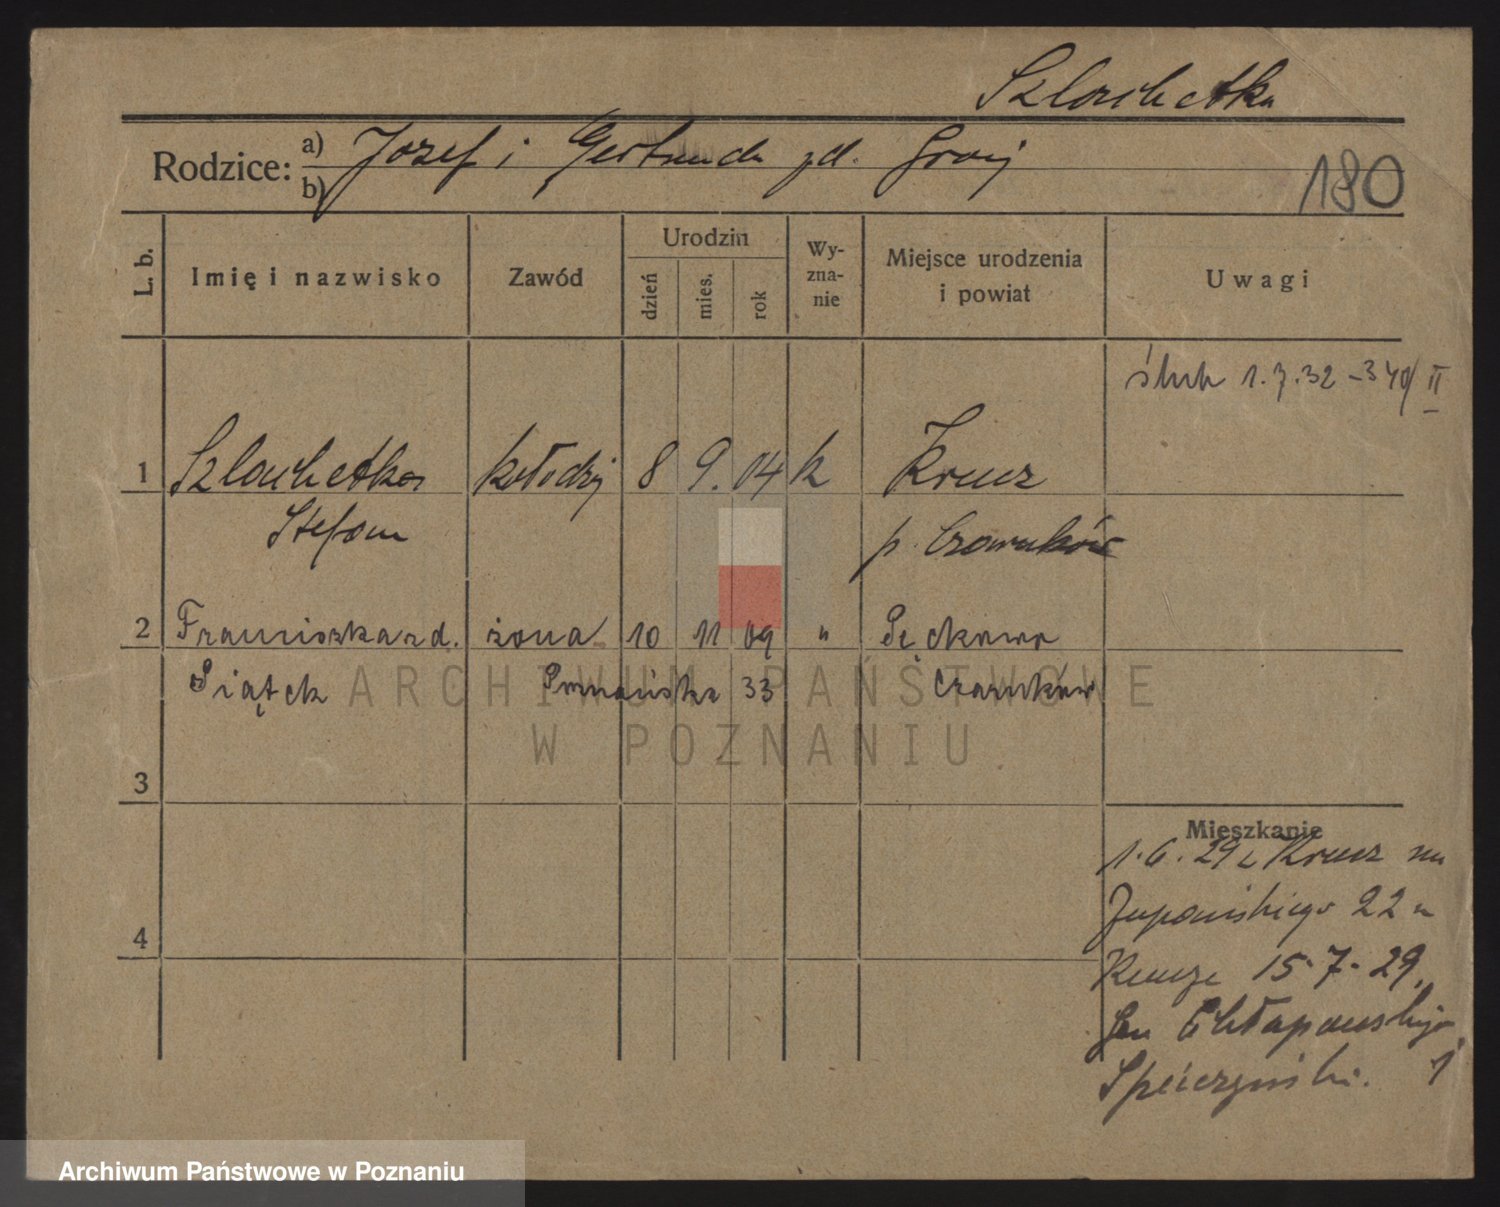 Szlachetka
Rodzice: a) Józef i Gertruda zd. Graj
b)
180
L. b.
Imię i nazwisko
Zawód
Urodzin
dzień
mies.
rok
Wy-
zna-
nie
Miejsce urodzenia
i powiat
Uwagi
ślub 1.7.32 - 340/II
1 Szlachetka kołodziej 8 9. 04 k Krucz
Stefan p. Czarnków
2 Franciszka zd. żona 10 11 09 " Pęckowo
Piątek Poznańska 33 Czarnków
ARCHIWUM PAŃSTWOWE
W POZNANIU
3
Mieszkanie
1.6.29 z Krucz
Żupańskiego 22 u
4
15.7.29.
Gen Chłapowskiego
1
Archiwum Państwowe w Poznaniu